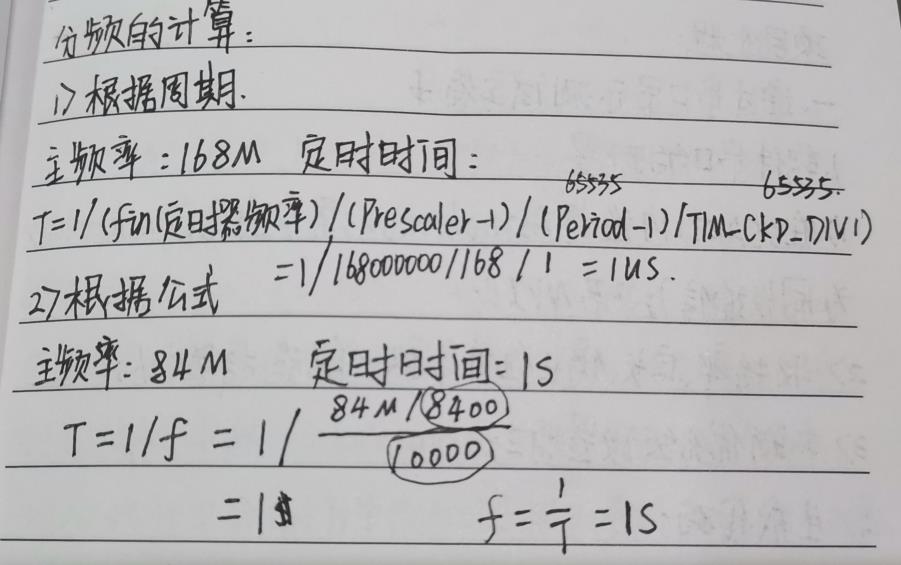 分频的计算:
1>根据周期.
主频率:168M 定时时间:
65535 65535.
T=1/(fin(定时器频率)/(Prescaler-1)/(Period-1)/TIM-CKD-DIV1)
=1/168000000/168/1 = 1us.
2>根据公式
主频率:84M 定时时间:1S
84M/8400
T=1/f = 1/
10000
=1S f=1/T=1S